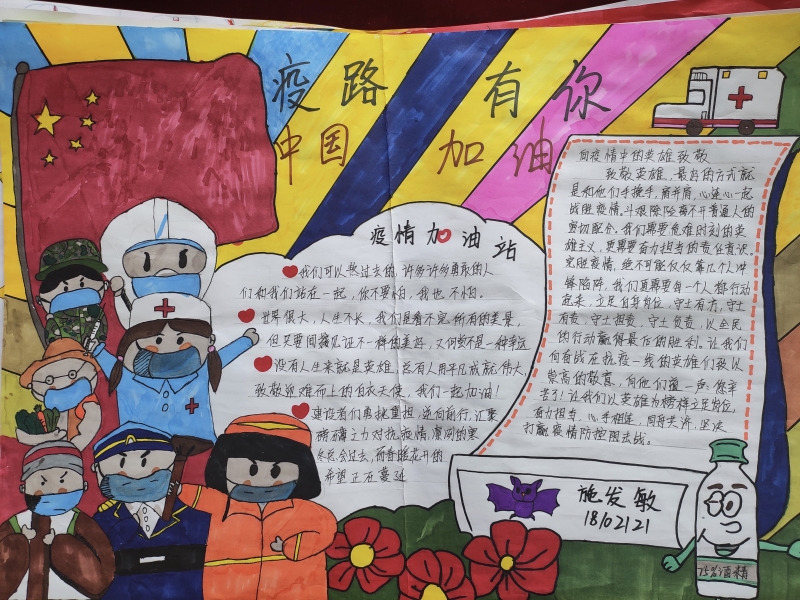 疫路有你
中国加油
疫情加油站
我们可以熬过去的,许多许多勇敢的人
们和我们站在一起,你不要怕,我也不怕。
世界很大,人生不长,我们是看不完所有的美景,
但只要间隔见证不一样的美好,又何尝不是一种幸运
没有人生来就是英雄,总有人用平凡成就伟大,
致敬迎难而上的白衣天使,我们一起加油!
建设者们勇挑重担,逆向前行,汇聚
磅礴之力对抗疫情,凛冽的寒
冬总会过去,而春暖花开的
希望正在蔓延
向疫情中的英雄致敬
致敬英雄,最好的方式就
是和他们手挽手,肩并肩,心连心一起
战胜疫情,斗艰除险离不开普通人的
密切配合,我们需要危难时刻的英
雄主义,更需要奋力担当的责任意识。
克胜疫情,绝不可能仅仅靠几个人冲
锋陷阵,我们真需要每一个人都行动
起来,立足自身岗位,守土有方,守土
有责,守土担责,守土负责,以全民
的行动赢得最后的胜利,让我们
向奋战在抗疫一线的英雄们致以
崇高的敬意,向他们道一声:您辛
苦了!让我们以英雄为榜样立足岗位,
奋力担当,心手相连,同舟共济,坚决
打赢疫情防控阻击战。
施发敏
18/02121
75%酒精